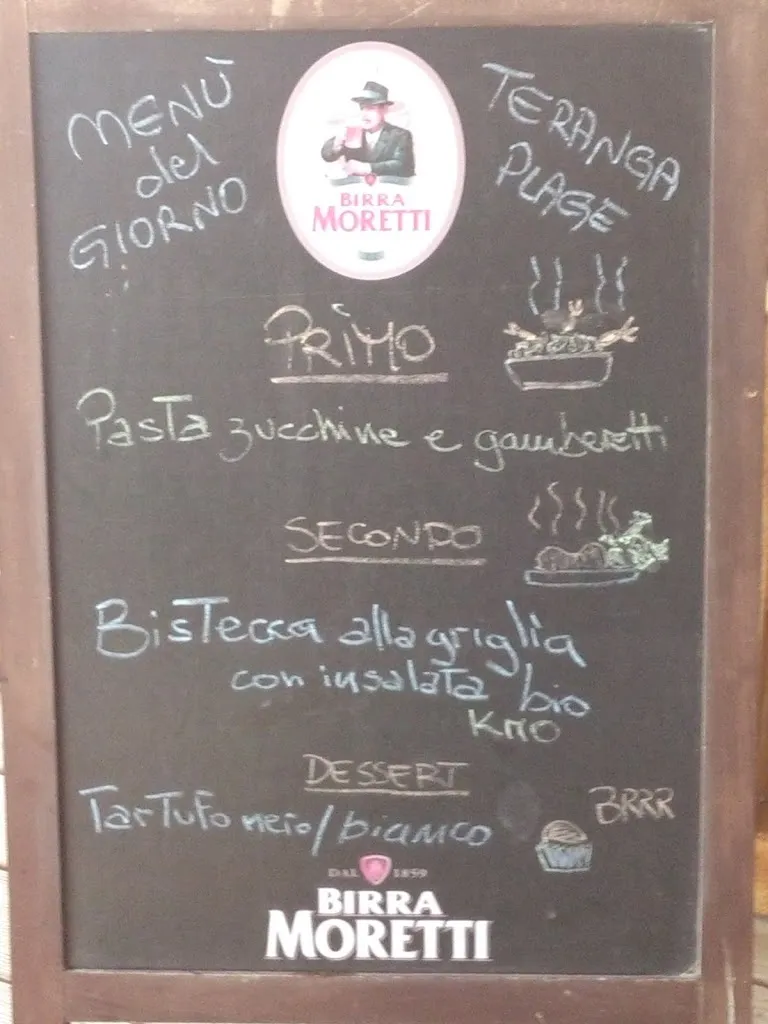 MENÙ
del
GIORNO
BIRRA
MORETTI
TERANGA
PLAGE
PRIMO
Pasta zucchine e gamberetti
SECONDO
Bistecca alla griglia
con insalata bio
KM0
DESSERT
Tartufo nero/bianco
BRRR
DAL 1859
BIRRA
MORETTI